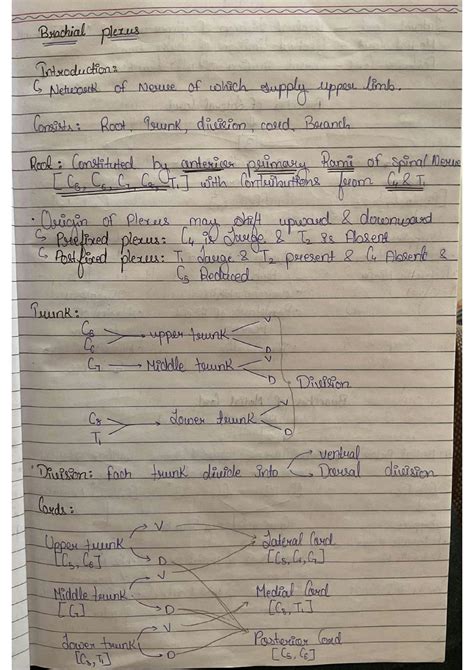 Brachial plexus
Introduction:
↳ Network of Nerve of which supply upper limb.
Consists: Root, Trunk, division, cord, Branch
Root: Constituted by anterior primary Rami of Spinal Nerve
[C5, C6, C7, C8, T1] with contributions from C4 & T1
· Origin of Plexus may shift upward & downward
↳ Prefixed plexus: C4 is Large & T2 is Absent
↳ Postfixed plexus: T1 Large & T2 present & C4 Absent &
C5 Reduced
Trunk:
V
C5
C6 → upper trunk
D
C7 → Middle trunk
V
D
Division
V
C8
T1 → Lower trunk
D
· Division: Each trunk divide into → ventral
→ Dorsal division
Cords:
V
Upper trunk
[C5, C6]
D
Lateral Cord
[C5, C6, C7]
V
Middle trunk
[C7]
D
Medial Cord
[C8, T1]
V
Lower trunk
[C8, T1]
D
Posterior Cord
[C5, C6]